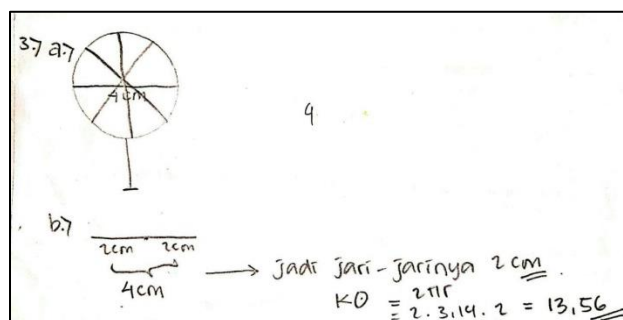 3.7 a.7
4cm
4
b.7
2cm 2cm
4cm
jadi jari-jarinya 2 cm.
KO = 2πr
= 2. 3,14. 2 = 13,56